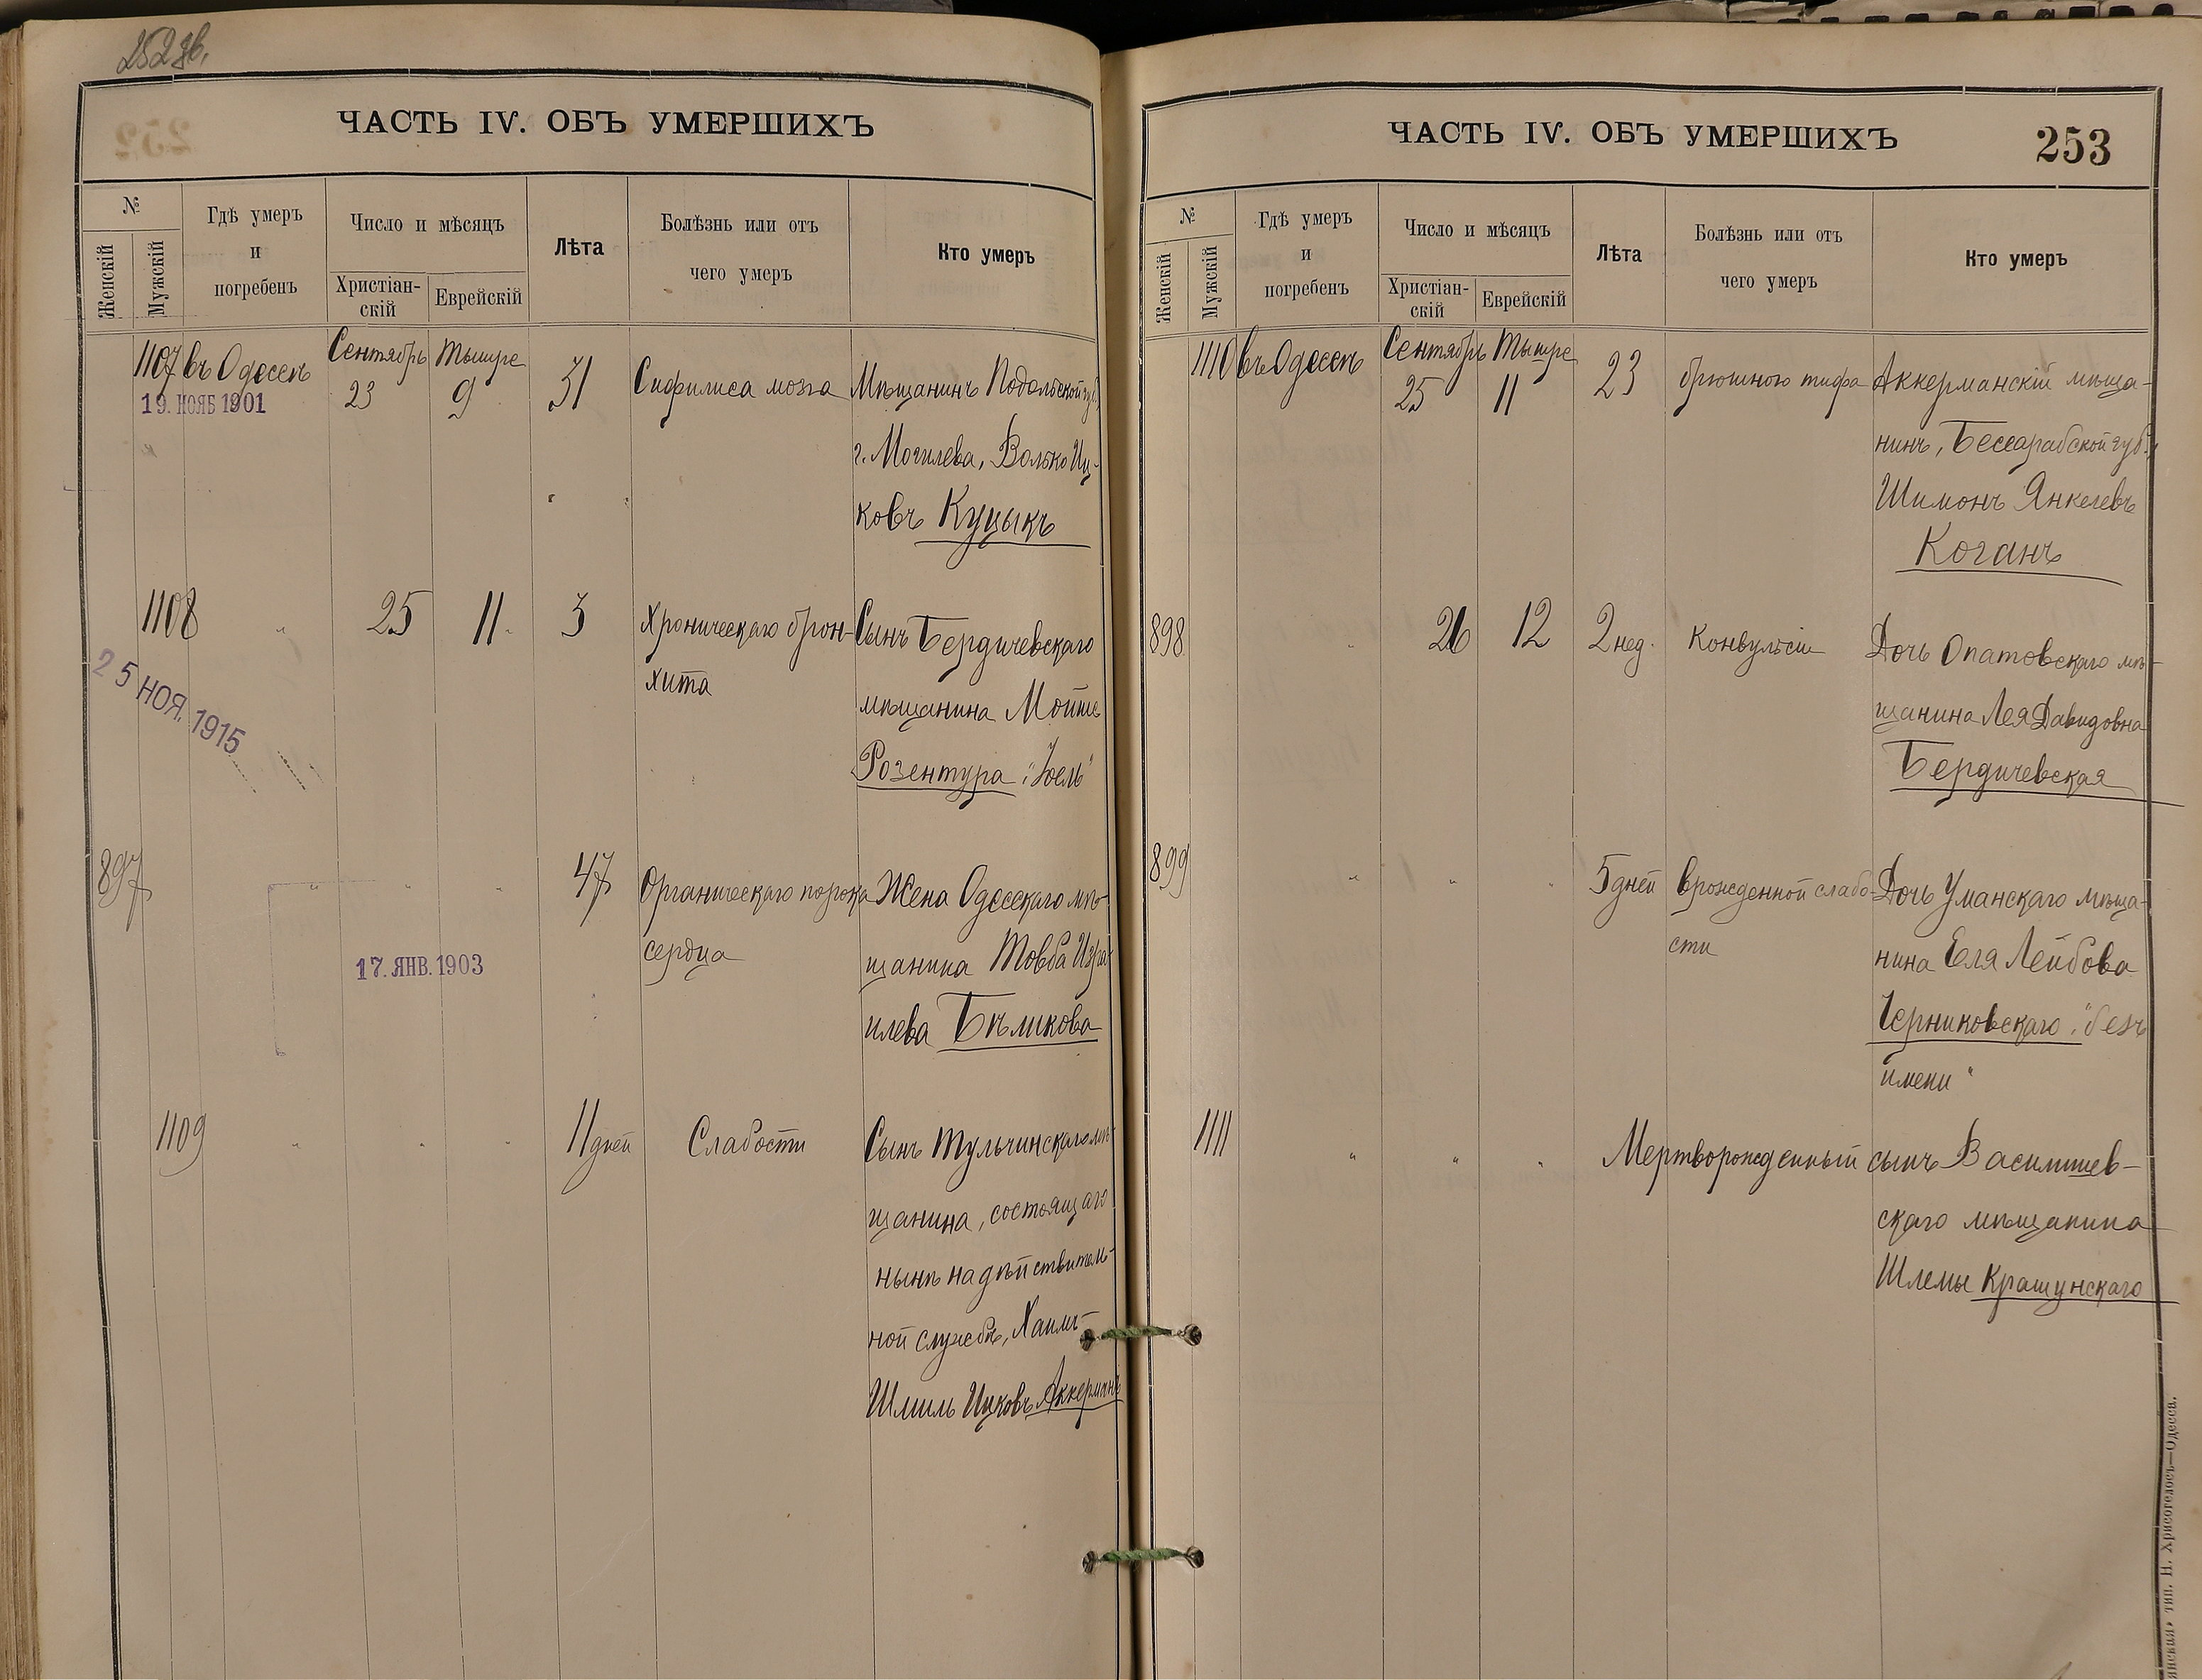 252 об.
ЧАСТЬ IV. ОБЪ УМЕРШИХЪ
№
Женскій
Мужскій
Гдѣ умеръ
и
погребенъ
Число и мѣсяцъ
Христіан-
скій
Еврейскій
Лѣта
Болѣзнь или отъ
чего умеръ
Кто умеръ
1107 въ Одессѣ Сентябрь 23 Тышре 9 31 Сифилиса мозга Мѣщанинъ Подольской губ.,
19. НОЯБ 1901
г. Могилева, Волько Иц-
ковъ Куцыкъ
1108 " 25 11 3 Хроническаго брон- Сынъ Бердичевскаго
хита мѣщанина Мойше
Розентура "Іоель"
25 НОЯ. 1915
897 " " " 47 Органическаго порока Жена Одесскаго мѣ-
сердца щанина Товба Изра-
17. ЯНВ. 1903
илева Бѣликова
1109 " " " 11 дней Слабости Сынъ Тульчинскаго мѣ-
щанина, состоящаго
нынѣ на дѣйствитель-
ной службѣ, Хаимъ-
Шмиль Ицковъ Аккерманъ
ЧАСТЬ IV. ОБЪ УМЕРШИХЪ
253
№
Женскій
Мужскій
Гдѣ умеръ
и
погребенъ
Число и мѣсяцъ
Христіан-
скій
Еврейскій
Лѣта
Болѣзнь или отъ
чего умеръ
Кто умеръ
1110 въ Одессѣ Сентябрь 25 Тышре 11 23 брюшного тифа Аккерманскій мѣща-
нинъ, Бессарабской губ.,
Шимонъ Янкелевъ
Коганъ
898 " 26 12 2 нед. Конвульсіи Дочь Опатовскаго мѣ-
щанина Лея Давидовна
Бердичевская
899 " " " 5 дней врожденной слабо- Дочь Уманскаго мѣща-
сти нина Еля Лейбова
Черниковскаго "безъ
имени"
1111 " " " Мертворожденный сынъ Василишев-
скаго мѣщанина
Шлемы Крашунскаго
тип. Н. Хрисогелосъ—Одесса.